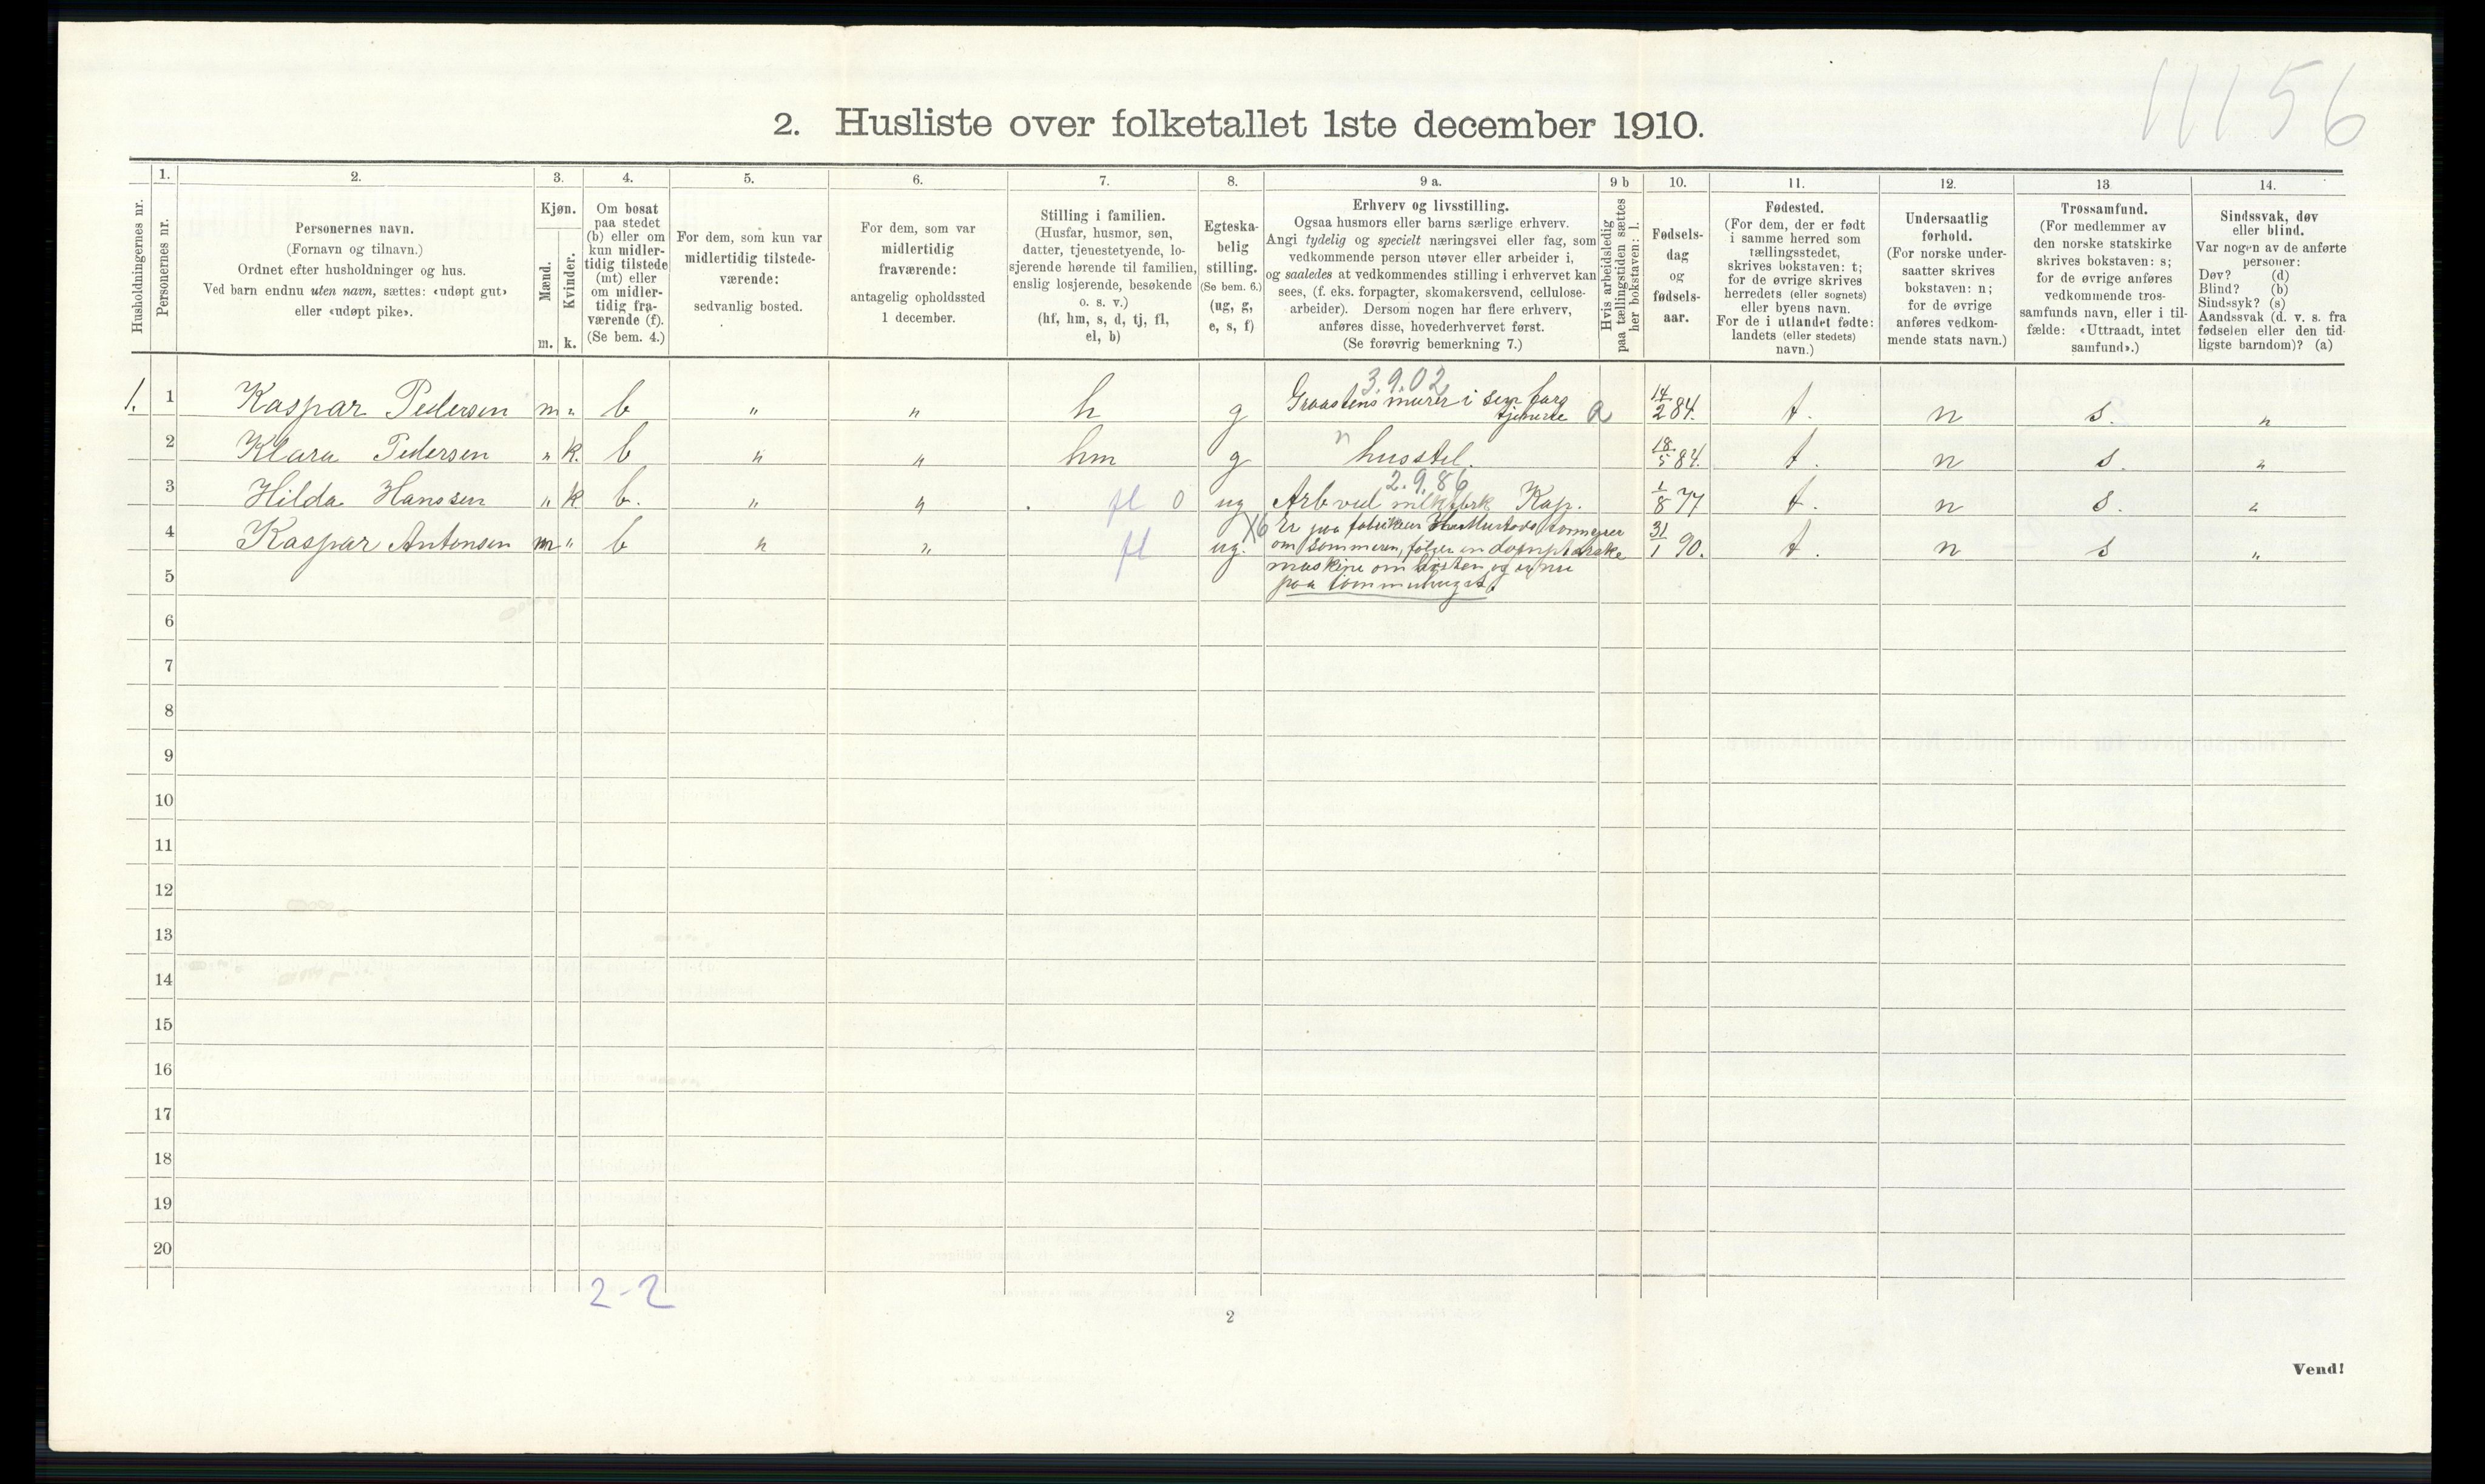 11156
2. Husliste over folketallet 1ste december 1910.
Husholdningernes nr.
1.
Personernes nr.
2.
Personernes navn.
(Fornavn og tilnavn.)
Ordnet efter husholdninger og hus.
Ved barn endnu uten navn, sættes: «udøpt gut»
eller «udøpt pike».
3.
Kjøn.
Mænd.
Kvinder.
m. k.
4.
Om bosat
paa stedet
(b) eller om
kun midler-
tidig tilstede
(mt) eller
om midler-
tidig fra-
værende (f).
(Se bem. 4.)
5.
For dem, som kun var
midlertidig tilstede-
værende:
sedvanlig bosted.
6.
For dem, som var
midlertidig
fraværende:
antagelig opholdssted
1 december.
7.
Stilling i familien.
(Husfar, husmor, søn,
datter, tjenestetyende, lo-
sjerende hørende til familien,
enslig losjerende, besøkende
o. s. v.)
(hf, hm, s, d, tj, fl,
el, b)
8.
Egteska-
belig
stilling.
(Se bem. 6.)
(ug, g,
e, s, f)
9 a.
Erhverv og livsstilling.
Ogsaa husmors eller barns særlige erhverv.
Angi tydelig og specielt næringsvei eller fag, som
vedkommende person utøver eller arbeider i,
og saaledes at vedkommendes stilling i erhvervet kan
sees, (f. eks. forpagter, skomakersvend, cellulose-
arbeider). Dersom nogen har flere erhverv,
anføres disse, hovederhvervet først.
(Se forøvrig bemerkning 7.)
9 b
Hvis arbeidsledig
paa tællingstiden sættes
her bokstaven: l.
10.
Fødsels-
dag
og
fødsels-
aar.
11.
Fødested.
(For dem, der er født
i samme herred som
tællingsstedet,
skrives bokstaven: t;
for de øvrige skrives
herredets (eller sognets)
eller byens navn.
For de i utlandet fødte:
landets (eller stedets)
navn.)
12.
Undersaatlig
forhold.
(For norske under-
saatter skrives
bokstaven: n;
for de øvrige
anføres vedkom-
mende stats navn.)
13
Trossamfund.
(For medlemmer av
den norske statskirke
skrives bokstaven: s;
for de øvrige anføres
vedkommende tros-
samfunds navn, eller i til-
fælde: «Uttraadt, intet
samfund».)
14.
Sindssvak, døv
eller blind.
Var nogen av de anførte
personer:
Døv? (d)
Blind? (b)
Sindssyk? (s)
Aandssvak (d. v. s. fra
fødselen eller den tid-
ligste barndom)? (a)
3.9.02
1. 1 Kaspar Pedersen m " b " " h g Graastens murer i sin fars tjeneste a 14/2 84. t. n s. "
2 Klara Pedersen " k. b " " hm g n husstel. 18/5 84. t. n s. "
2.9.86
3 Hilda Hanssen " k b. " " fl 0 ug Arb ved Kap. 1/8 77 t. n s. "
4 Kaspar Antonsen m " b " " fl ug. X6 Er paa fabriken om sommeren, følger en 31/1 90. t. n s "
5 maskine om høsten og er nu
paa tømmerhugst.
6
7
8
9
10
11
12
13
14
15
16
17
18
19
20
2-2
2
Vend!